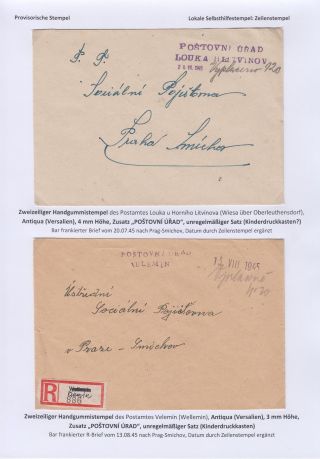 Provisorische Stempel
Lokale Selbsthilfestempel: Zeilenstempel
POŠTOVNÍ ÚŘAD
LOUKA LITVÍNOV
1945 Vyplaceno 120
P. T.
Sociální Pojišťovna
Praha Smíchov
Zweizeiliger Handgummistempel des Postamtes Louka u Horního Litvínova (Wiesa über Oberleutensdorf),
Antiqua (Versalien), 4 mm Höhe, Zusatz „POŠTOVNÍ ÚŘAD", unregelmäßiger Satz (Kinderdruckkasten?)
Bar frankierter Brief vom 20.07.45 nach Prag-Smichov, Datum durch Zeilenstempel ergänzt
POŠTOVNÍ ÚŘAD
VELEMÍN
VIII 1945
Ústřední
Sociální Pojišťovna
v Praze - Smíchov
R
888
Zweizeiliger Handgummistempel des Postamtes Velemín (Wellemin), Antiqua (Versalien), 3 mm Höhe,
Zusatz „POŠTOVNÍ ÚŘAD", unregelmäßiger Satz (Kinderdruckkasten)
Bar frankierter R-Brief vom 13.08.45 nach Prag-Smichov, Datum durch Zeilenstempel ergänzt